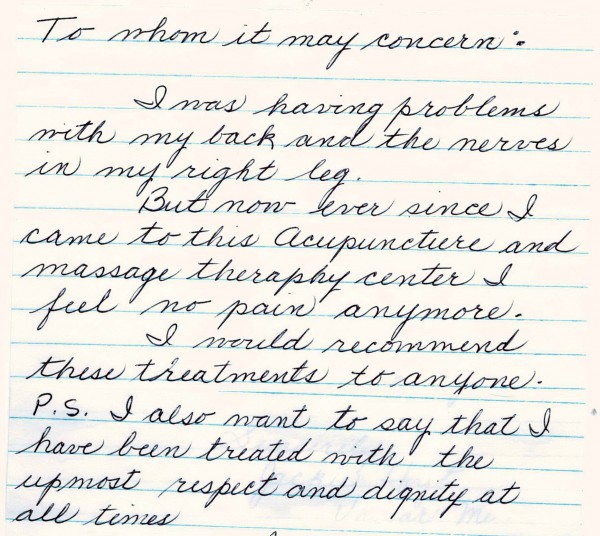 To whom it may concern:
I was having problems
with my back and the nerves
in my right leg.
But now ever since I
came to this Acupuncture and
massage theraphy center I
feel no pain anymore.
I would recommend
these treatments to anyone.
P.S. I also want to say that I
have been treated with the
upmost respect and dignity at
all times